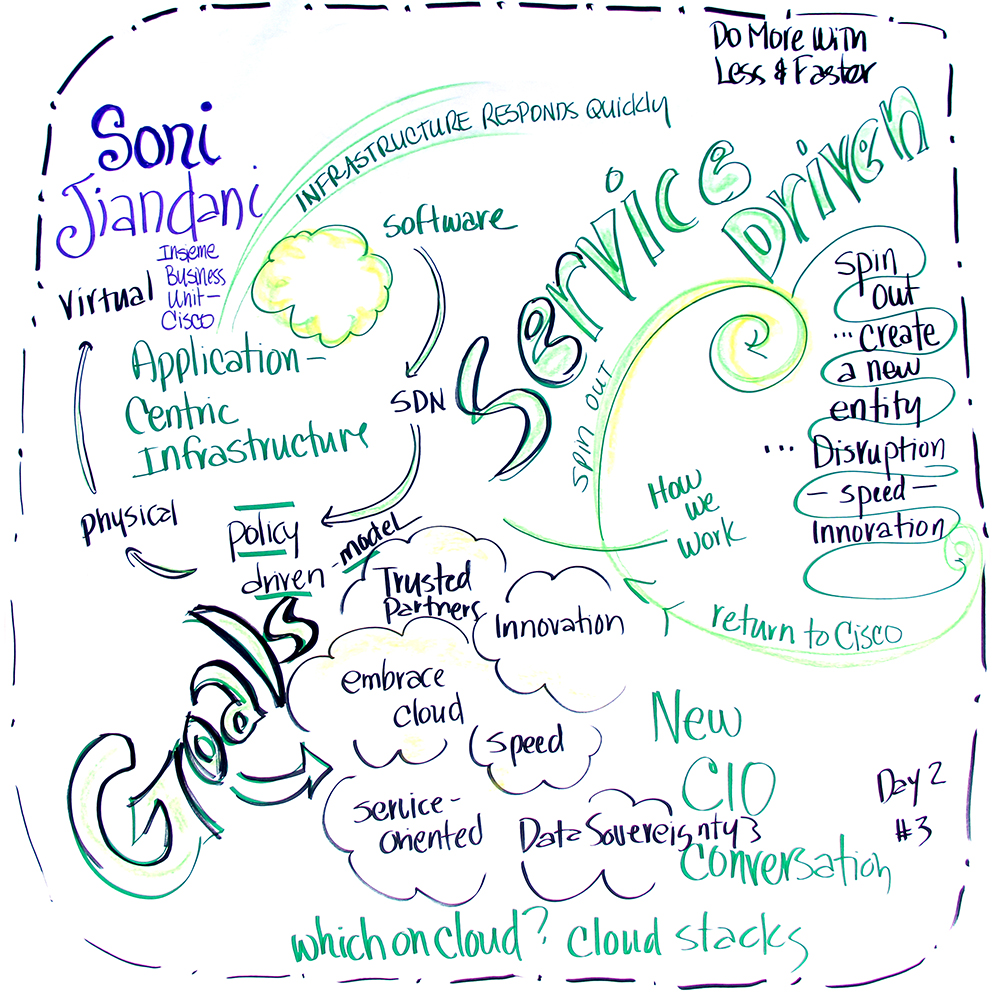 Do More With
Less & Faster
Soni
Jiandani
Insieme
Business
Unit-
Cisco
INFRASTRUCTURE RESPONDS QUICKLY
Service
Driven
software
SDN
Virtual
physical
Application-
Centric
Infrastructure
policy
driven - model
SPIN OUT
spin
out
... create
a new
entity
... Disruption
- speed -
Innovation
How
we
work
return to Cisco
Goals
Trusted
Partners
Innovation
embrace
cloud
speed
service-
oriented
Data Sovereignty
New
CIO
Conversation
Day 2
#3
which on cloud? cloud stacks